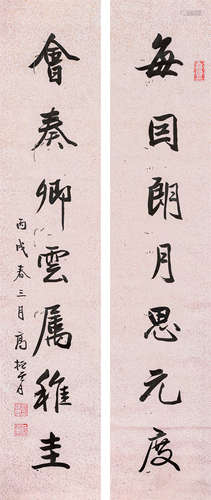 每因朗月思元度
會奏卿雲屬稚圭
丙戌春三月高振霄